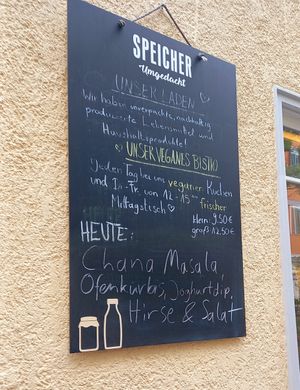 SPEICHER
Umgedacht
UNSER LADEN
Wir haben unverpackte, nachhaltig
produzierte Lebensmittel und
Haushaltsprodukte!
UNSER VEGANES BISTRO
Jeden Tag bei uns veganer Kuchen
und Di-Fr. von 12-15 frischer
Mittagstisch
klein: 9,50€
groß: 12,50€
HEUTE:
Chana Masala,
Ofenkürbis, Joghurtdip,
Hirse & Salat